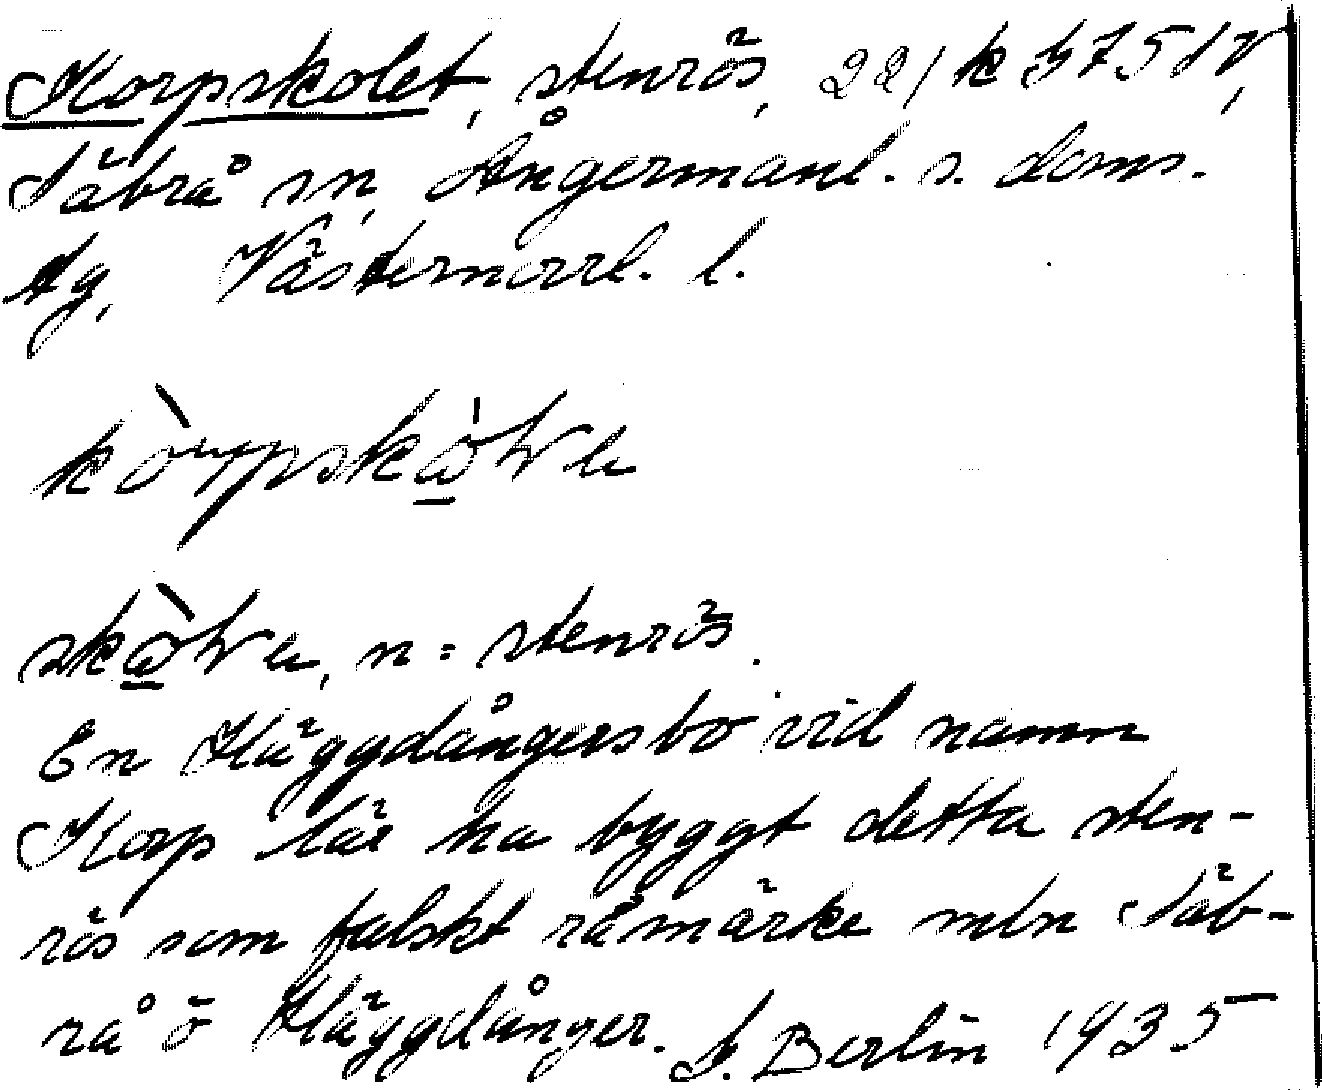 Korpskolet, stenrös, 22/k 375 IV,
Säbrå sn, Ångermanl. s. doms.
tg, Västernorrl. l.
skò̱ƚɐ, n = stenrös.
En Häggdångersbo vid namn
Korp lär ha byggt detta sten-
rös som falskt råmärke mln Säb-
rå o Häggdånger. S. Berlin 1935